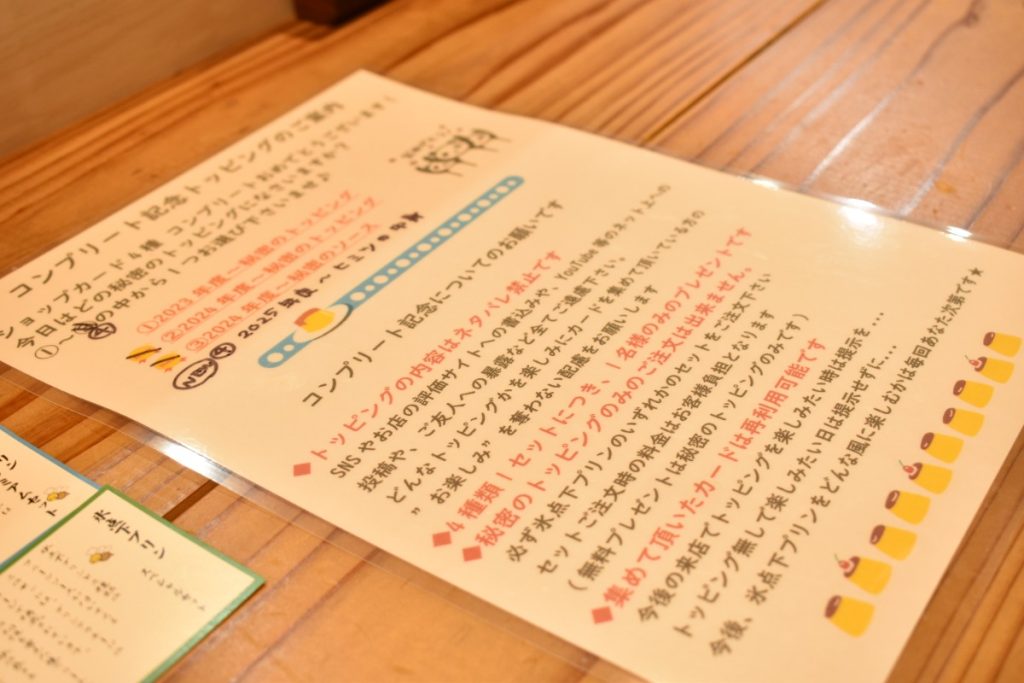 コンプリート記念トッピングのご案内
ショップカード4種 コンプリートおめでとうございます!
今日はどの秘密のトッピングになさいますか?
①~④の中から1つお選び下さいませ♪
①2023年度~秘密のトッピング
②2024年度~秘密のトッピング
③2024年度~秘密のソース
NEW ④ 2025年度~ヒミツの
コンプリート記念についてのお願いです
◆トッピングの内容はネタバレ禁止です
SNSやお店の評価サイトへの書込みや、YouTube等のネット上への
投稿や、ご友人への暴露など全てご遠慮下さい。
どんなトッピングかを楽しみにカードを集めて頂いている方の
”お楽しみ”を奪わない配慮をお願いします
◆4種類1セットにつき、1名様のみのプレゼントです
◆秘密のトッピングのみのご注文は出来ません。
必ず氷点下プリンのいずれかのセットをご注文下さい
セットご注文時の料金はお客様負担となります
(無料プレゼントは秘密のトッピングのみです)
◆集めて頂いたカードは再利用可能です
今後の来店でトッピングを楽しみたい時は提示を...
トッピング無しで楽しみたい日は提示せずに...
今後、氷点下プリンをどんな風に楽しむかは毎回あなた次第です★
氷点下プリン